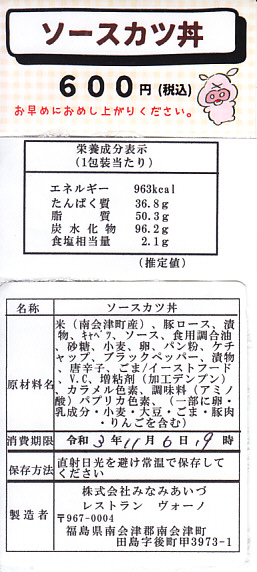 ソースカツ丼
６００円(税込)
お早めにおめし上がりください。
栄養成分表示
(1包装当たり)
エネルギー 963kcal
たんぱく質 36.8g
脂質 50.3g
炭水化物 96.2g
食塩相当量 2.1g
(推定値)
名称 ソースカツ丼
原材料名 米(南会津町産)、豚ロース、漬
物、ｷｬﾍﾞﾂ、ソース、食用調合油
、砂糖、小麦、卵、パン粉、ケチ
ャップ、ブラックペッパー、漬物
、唐辛子、ごま/イーストフード
、V.C、増粘剤(加工デンプン)
、カラメル色素、調味料(アミノ
酸)パプリカ色素、(一部に卵・
乳成分・小麦・大豆・ごま・豚肉
・りんごを含む)
消費期限 令和3年11月6日19時
保存方法 直射日光を避け常温で保存して
ください
製造者 株式会社みなみあいづ
レストラン ヴォーノ
〒967-0004
福島県南会津郡南会津町
田島字後町甲3973-1